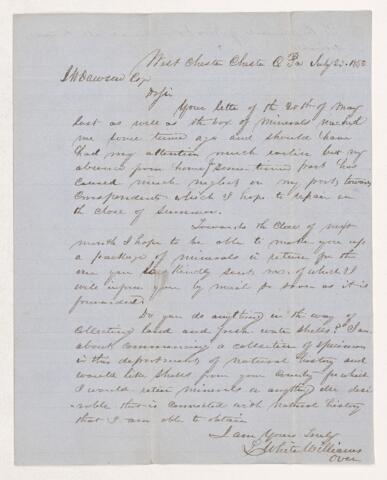 West Chester Chester Co Pa July 2d 1850
J W Dawson Esq
D Sir
Your letter of the 20th of May
last as well as the box of minerals reached
me some time ago and should have
had my attention much earlier but my
absence from home for some time past has
caused much neglect on my part toward
Correspondents which I hope to repair on
the close of Summer.
Towards the Close of next
month I hope to be able to make you up
a package of minerals in return for the
one you so kindly sent me of which I
will inform you by mail so soon as it is
forwarded.
Do you do anything in the way of
collecting land and fresh water shells? I am
about commencing a collection of specimens
in this department of natural history and
would like shells from your County for which
I would return minerals or anything else desi-
rable that is connected with natural history
that I am able to obtain
I am Yours Truly
L White Williams
Over